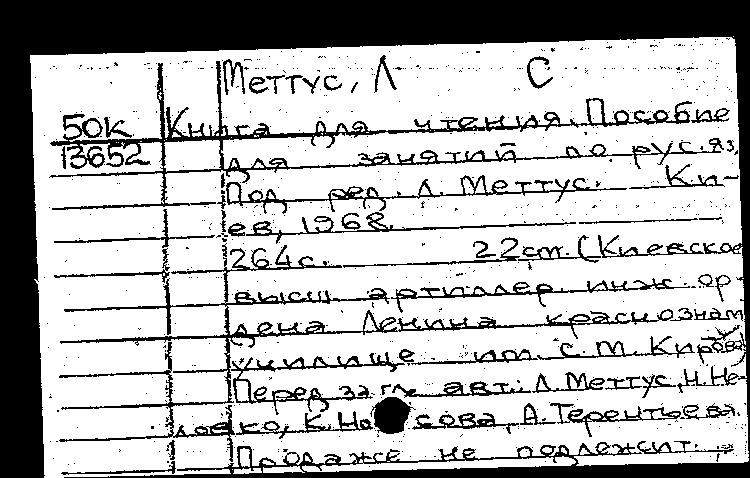 Меттус, Л С
50к Книга для чтения. Пособие
13652 для занятий по рус.яз.
Под ред. Л. Меттус. Ки-
ев, 1968.
264с. 22cm. (Киевское
высш. артиллер. инж. ор-
дена Ленина краснознам
училище им. С. М. Кирова)
Перед загл. авт.: Л. Меттус, Н. Не-
ко, К. сова, А. Терентьева.
Продаже не подлежит.